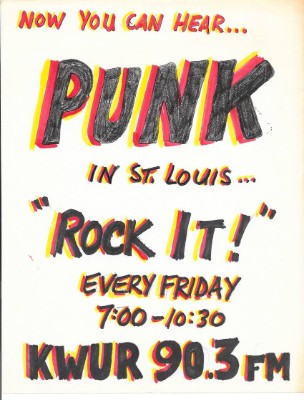 NOW YOU CAN HEAR...
PUNK
IN ST. LOUIS...
"ROCK IT!"
EVERY FRIDAY
7:00-10:30
KWUR 90.3 FM